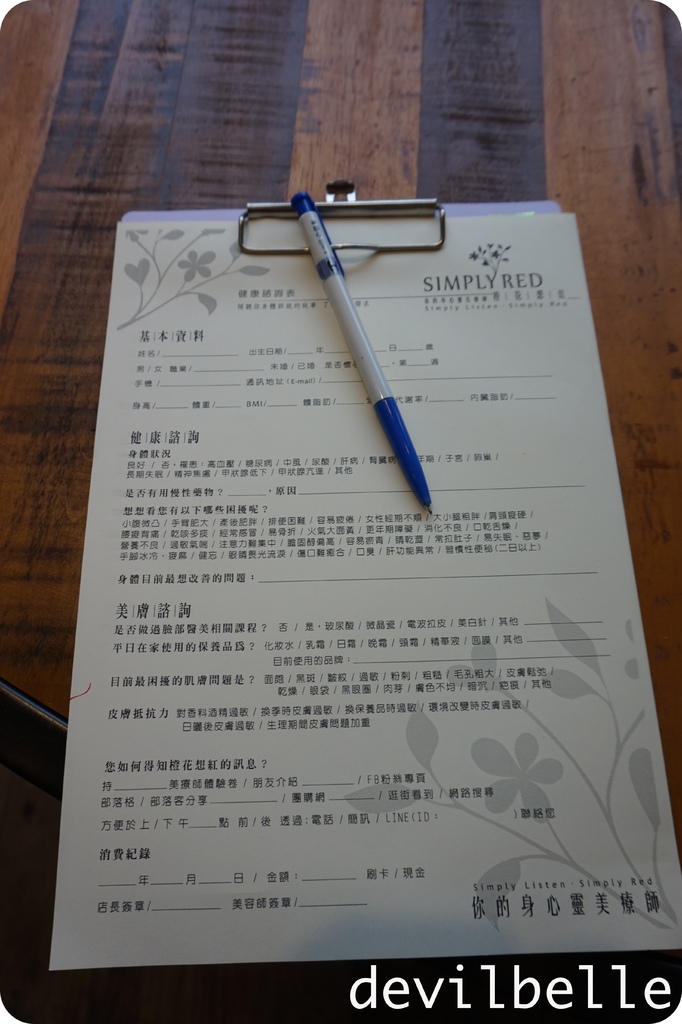 SIMPLY RED
健康諮詢表
Simply Listen · Simply Red
基本資料
姓名/ 出生日期/ 年 日 歲
男/女 職業/ 未婚/已婚 是否懷 第 週
手機/ 通訊地址(E-mail)/
身高/ 體重/ BMI/ 體脂肪/ 代謝率/ 內臟脂肪/
健康諮詢
身體狀況
良好 / 否，罹患：高血壓 / 糖尿病 / 中風 / 尿酸 / 肝病 / 腎臟病 年期 / 子宮 / 卵巢 /
長期失眠 / 精神焦慮 / 甲狀腺低下 / 甲狀腺亢進 / 其他
是否有用慢性藥物？ ，原因
想想看您有以下哪些困擾呢？
小腹微凸 / 手臂肥大 / 產後肥胖 / 排便困難 / 容易疲倦 / 女性經期不順 / 大小腿粗胖 / 肩頸痠硬 /
腰痠背痛 / 乾咳多痰 / 經常感冒 / 易骨折 / 火氣大面黃 / 更年期障礙 / 消化不良 / 口乾舌燥 /
營養不良 / 過敏氣喘 / 注意力難集中 / 膽固醇偏高 / 容易瘀青 / 晴乾澀 / 常拉肚子 / 易失眠、惡夢 /
手腳冰冷、痠麻 / 健忘 / 眼睛畏光流淚 / 傷口難癒合 / 口臭 / 肝功能異常 / 習慣性便秘(二日以上)
身體目前最想改善的問題：
美膚諮詢
是否做過臉部醫美相關課程？ 否 / 是，玻尿酸 / 微晶瓷 / 電波拉皮 / 美白針 / 其他
平日在家使用的保養品為？ 化妝水 / 乳霜 / 日霜 / 晚霜 / 頸霜 / 精華液 / 面膜 / 其他
目前使用的品牌：
目前最困擾的肌膚問題是？ 面皰 / 黑斑 / 皺紋 / 過敏 / 粉刺 / 粗糙 / 毛孔粗大 / 皮膚鬆弛 /
乾燥 / 眼袋 / 黑眼圈 / 肉芽 / 膚色不均 / 暗沉 / 疤痕 / 其他
皮膚抵抗力 對香料酒精過敏 / 換季時皮膚過敏 / 換保養品時過敏 / 環境改變時皮膚過敏 /
日曬後皮膚過敏 / 生理期間皮膚問題加重
您如何得知橙花想紅的訊息？
持 美療師體驗卷 / 朋友介紹 / FB粉絲專頁
部落格 / 部落客分享 / 團購網 / 逛街看到 / 網路搜尋
方便於上 / 下午 點 前 / 後 透過:電話 / 簡訊 / LINE(ID： )聯絡您
消費紀錄
年 月 日 / 金額： 刷卡 / 現金
店長簽章/ 美容師簽章/
Simply Listen · Simply Red
你的身心靈美療師
devilbelle